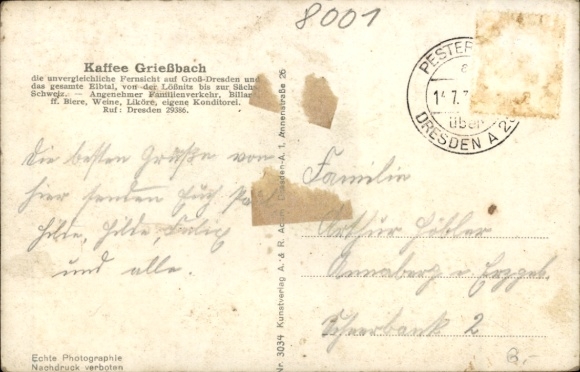 8001
Kaffee Grießbach
die unvergleichliche Fernsicht auf Groß-Dresden und
das gesamte Elbtal, von der Lößnitz bis zur Sächs.
Schweiz. — Angenehmer Familienverkehr, Billar
ff. Biere, Weine, Liköre, eigene Konditorei.
Ruf: Dresden 29386.
PESTER
14.7.
über
DRESDEN A
Die besten Grüße von
hier senden Euch
Hilde, Hilde,
und alle.
Familie
Arthur
Annaberg i. Erzgeb.
2
Nr. 3034 Kunstverlag A. & R. Adam, Dresden-A. 1, Annenstraße 26
Echte Photographie
Nachdruck verboten
6.-